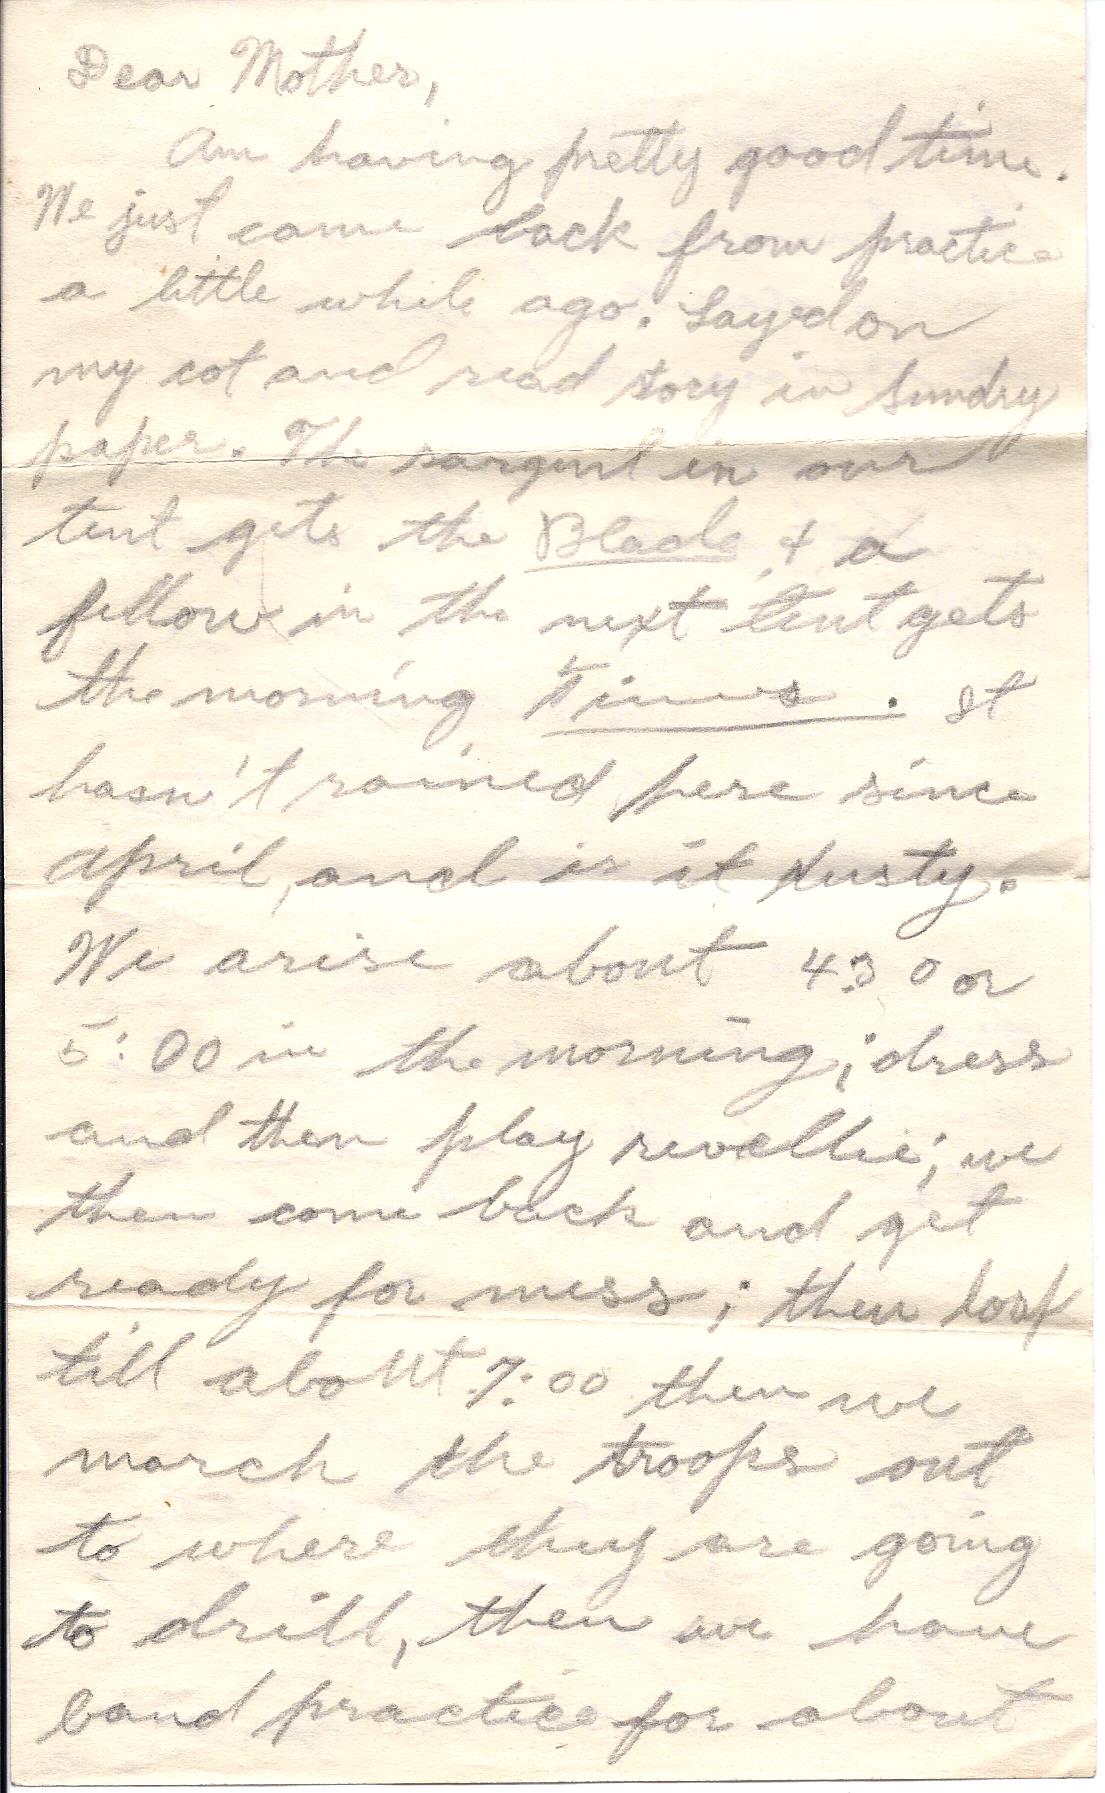 Dear Mother,
Am having pretty good time.
We just came back from practice
a little while ago. Layed on
my cot and read story in Sundry
paper. The sargent in our
tent gets the Blade + a
fellow in the next tent gets
the morning Times. It
hasn't rained here since
April, and is it dusty.
We arise about 430 or
5:00 in the morning; dress
and then play revellie; we
then come back and get
ready for mess; then loaf
till about 7:00 then we
march the troops out
to where they are going
to drill, then we have
band practice for about